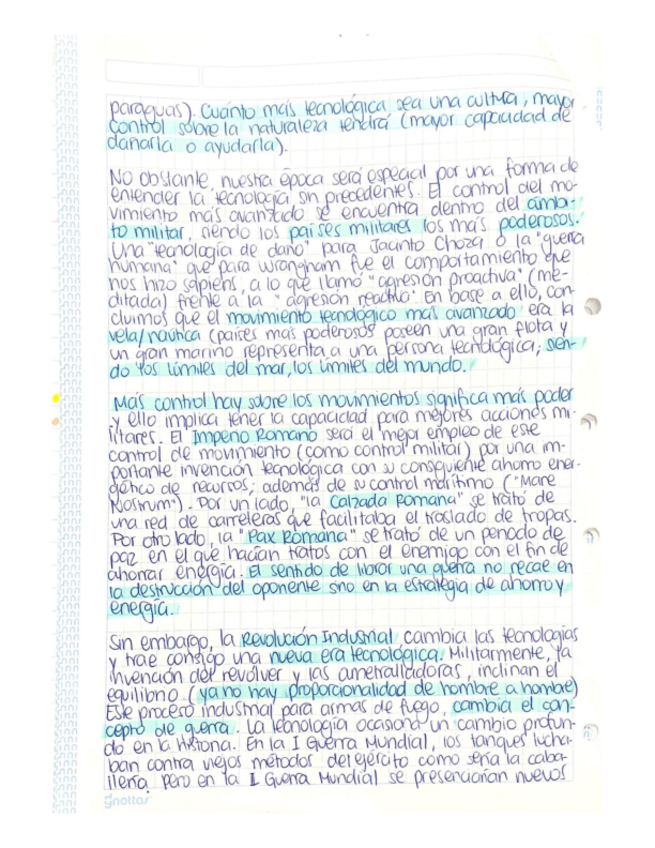 paraguas). Cuánto más tecnológica sea una cultura, mayor
control sobre la naturaleza tendrá (mayor capacidad de
dañarla o ayudarla).
No obstante, nuestra época será especial por una forma de
entender la tecnología sin precedentes. El control del mo-
vimiento más avanzado se encuentra dentro del ámbi-
to militar, siendo los países militares los más poderosos.
Una "tecnología de daño" para Jacinto Choza o la "guerra
humana" que para Wrangham fue el comportamiento que
nos hizo sapiens, a lo que llamó "agresión proactiva" (me-
ditada) frente a la "agresión reactiva". En base a ello, con-
cluimos que el movimiento tecnológico más avanzado era la
vela/naútica (países más poderosos poseen una gran flota y
un gran marino representa a una persona tecnológica; sien-
do los límites del mar, los límites del mundo.
Más control hay sobre los movimientos significa más poder
y ello implica tener la capacidad para mejores acciones mi-
litares. El Imperio Romano será el mejor empleo de este
control de movimiento (como control militar) por una im-
portante invención tecnológica con su consiguiente ahorro ener-
gético de recursos; además de su control marítimo ("Mare
Nostrum"). Por un lado, "la Calzada Romana" se trató de
una red de carreteras que facilitaba el traslado de tropas.
Por otro lado, la "Pax Romana" se trató de un periodo de
paz en el que hacían tratos con el enemigo con el fin de
ahorrar energía. El sentido de librar una guerra no recae en
la destrucción del oponente sino en la estrategia de ahorro y
energía.
Sin embargo, la Revolución Industrial cambia las tecnologías
y trae consigo una nueva era tecnológica. Militarmente, la
invención del revolver y las ametralladoras, inclinan el
equilibrio (ya no hay proporcionalidad de hombre a hombre)
Este proceso industrial para armas de fuego, cambia el con-
cepto de guerra. La tecnología ocasiona un cambio profun-
do en la historia. En la I Guerra Mundial, los tanques lucha-
ban contra viejos métodos del ejército como sería la caba-
llería. Pero en la I Guerra Mundial se presenciarían nuevos
gnottas